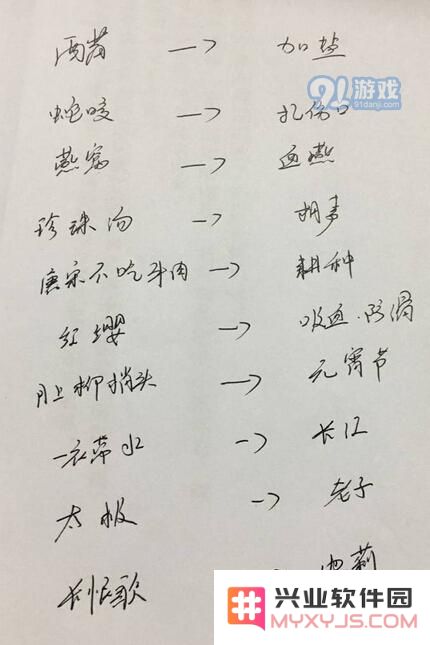 酒curing → 加盐
91游戏
91danji.com
蛇咬 → 扎伤口
燕窝 → 血燕
珍珠汤 → 胡麻
唐宋不吃牛肉 → 耕种
红缨 → 吸血.防滑
月上柳梢头 → 元宵节
一衣带水 → 长江
太极 → 老子
长恨歌
兴业软件园
MYXYJS.COM